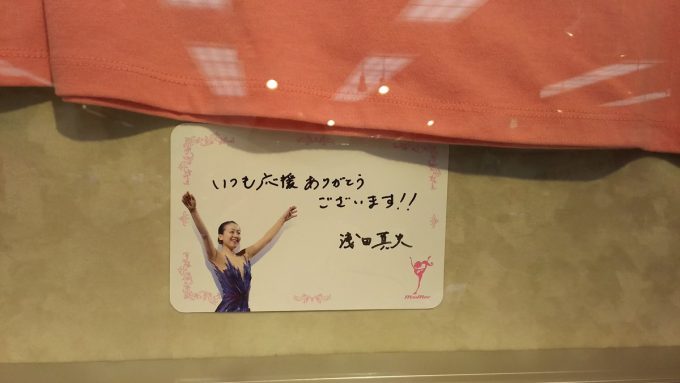 いつも応援ありがとう
ございます!!
浅田真央